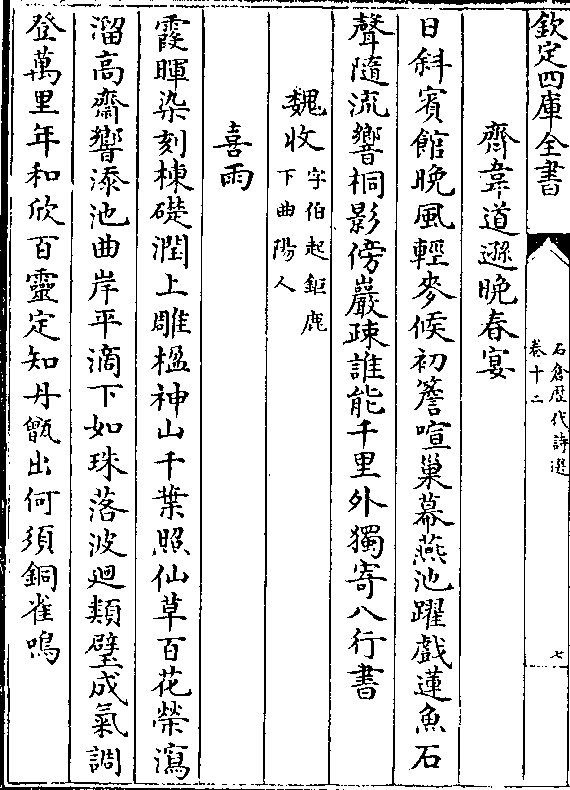 欽定四庫全書
石倉歷代詩選
卷十二
七
齊韋道遜晚春宴
日斜賓館晚風輕麥候初簷喧巢幕燕池躍戲蓮魚石
聲隨流響桐影傍巖疎誰能千里外獨寄八行書
魏收字伯起鉅鹿
下曲陽人
喜雨
霞暉染刻棟礎潤上雕楹神山千葉照仙草百花榮瀉
溜高齋響添池曲岸平滴下如珠落波迴類璧成氣調
登萬里年和欣百靈定知丹甑出何須銅雀鳴